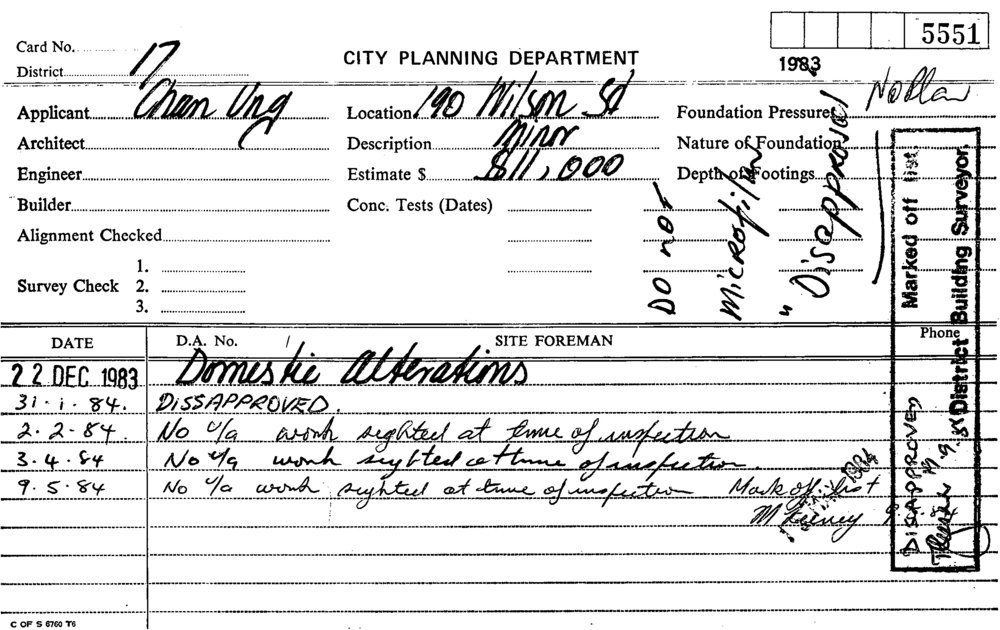 5551
Card No.
17
District
CITY PLANNING DEPARTMENT
1983
No Plan
Applicant Chan Ung
Location 190 Wilson St
Foundation Pressures
Architect
Description Minor
Nature of Foundation
Engineer
Estimate $ $11,000
Depth of Footings
Builder
Conc. Tests (Dates)
Alignment Checked
Survey Check
1.
2.
3.
Do not
Microfilm
"Disapproval
Marked off list.
District Building Surveyor.
DISAPPROVED
DATE
D.A. No.
SITE FOREMAN
Phone
22 DEC 1983 Domestic Alterations
31.1.84. DISSAPPROVED.
2.2.84. No u/a work sighted at time of inspection
3.4.84 No u/a work sighted at time of inspection.
9.5.84 No u/a work sighted at time of inspection Mark off list
C OF S 6760 T6